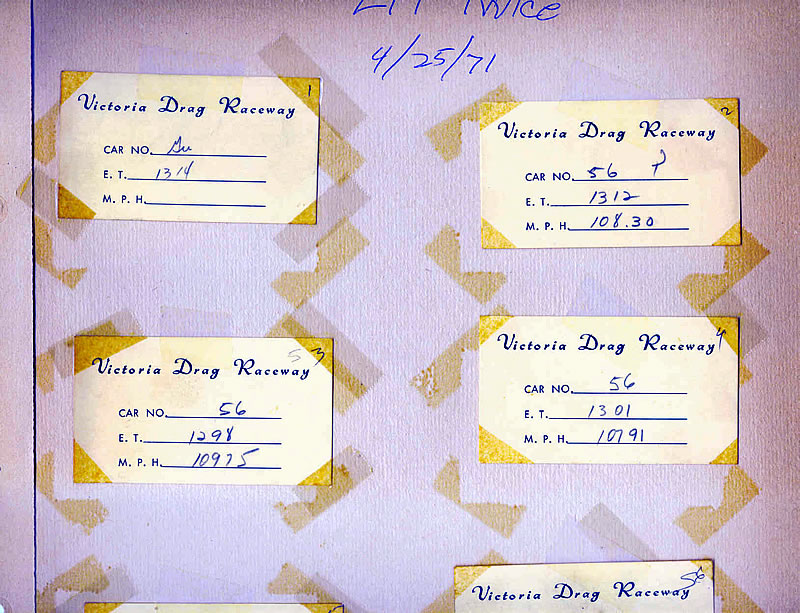 TWICE
4/25/71
1
Victoria Drag Raceway
CAR NO.
E. T. 1314
M. P. H.
2
Victoria Drag Raceway
CAR NO. 56 P
E. T. 1312
M. P. H. 108.30
5 3
Victoria Drag Raceway
CAR NO. 56
E. T. 1298
M. P. H. 10975
4
Victoria Drag Raceway
CAR NO. 56
E. T. 1301
M. P. H. 10791
Victoria Drag Raceway